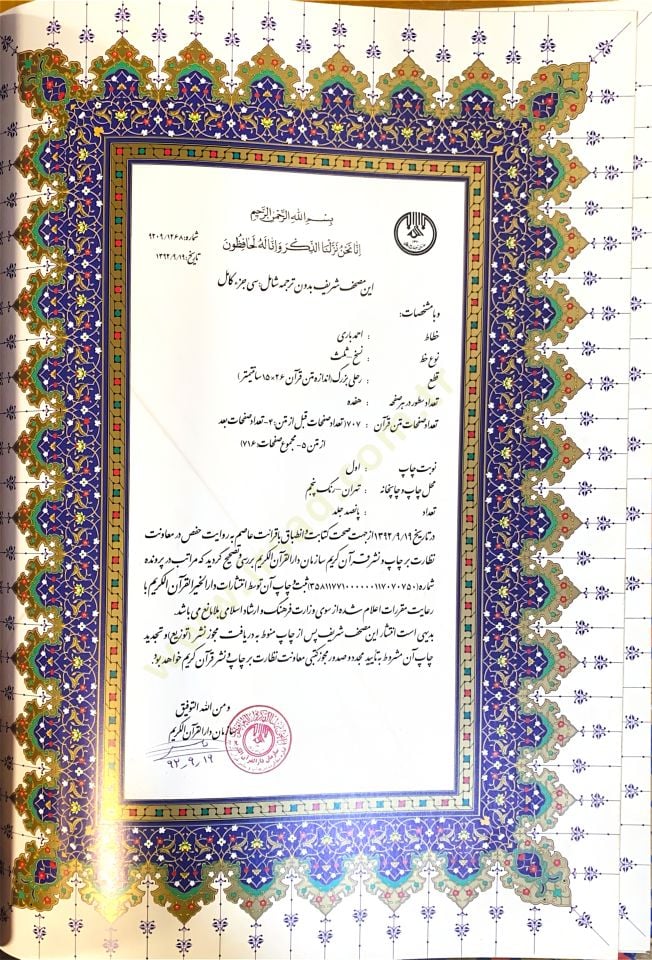 بسم الله الرحمن الرحیم
شماره: ۹۲۰۹/۱۲۶۸
انا نحن نزلنا الذکر و انا له لحافظون
تاریخ: ۱۳۹۲/۹/۱۹
این مصحف شریف بدون ترجمه شامل: سی جزء کامل
و با مشخصات:
خطاط : احمد باری
نوع خط : نسخ - ثلث
قطع : رحلی بزرگ (اندازه متن قرآن ۲۶×۱۵ سانتیمتر)
تعداد سطور در هر صفحه : هفده
تعداد صفحات متن قرآن : ۷۰۷ (تعداد صفحات قبل از متن: ۴ - تعداد صفحات بعد
از متن ۵ - مجموع صفحات: ۷۱۶)
نوبت چاپ : اول
محل چاپ و چاپخانه : تهران - رنگ پنجم
تعداد : پانصد جلد
در تاریخ ۱۳۹۲/۹/۱۹ از جهت صحت کتابت و انطباق با قرائت عاصم به روایت حفص در معاونت
نظارت بر چاپ و نشر قرآن کریم سازمان دارالقرآن الکریم بررسی و تصحیح گردید که مراتب در پرونده
شماره (۳۵۸۱۱۷۷۱۰۰۰۰۰۰۱۱۷۰۷۰۷۵۰) ثبت و چاپ آن توسط انتشارات دارالخیر القرآن الکریم با
رعایت مقررات اعلام شده از سوی وزارت فرهنگ و ارشاد اسلامی بلامانع می باشد.
بدیهی است انتشار این مصحف شریف پس از چاپ منوط به دریافت مجوز نشر (توزیع) و تجدید
چاپ آن مشروط به تأیید مجدد و صدور مجوز کتبی معاونت نظارت بر چاپ و نشر قرآن کریم خواهد بود.
و من الله التوفیق
سازمان دارالقرآن الکریم
۹۲_۹_۱۹